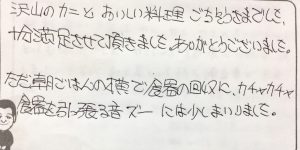 沢山のカニとおいしい料理ごちそうさまでした、
十分満足させて頂きました。ありがとうございました。
ただ朝ごはんの横で食器の回収に、カチャカチャ
食器を引っ張る音ズーには少しまいりました。